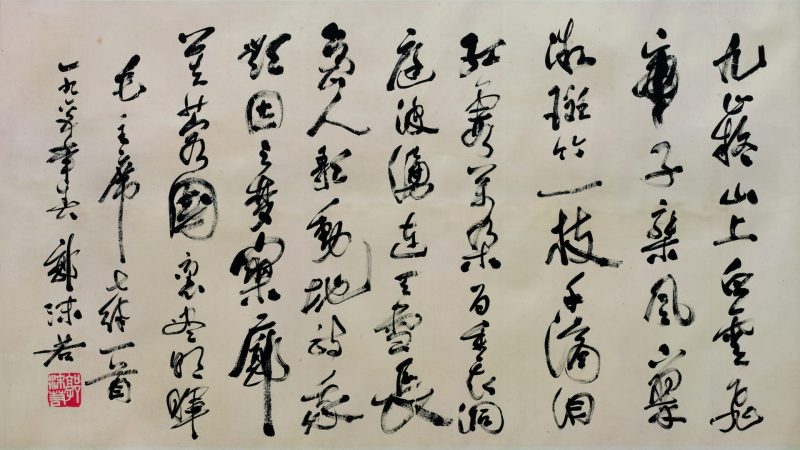 九嶷山上白雲飛
帝子乘風下翠
微斑竹一枝千滴泪
紅霞萬朵百重衣洞
庭波湧連天雪長
島人歌動地詩我
欲因之夢寥廓
芙蓉國裏盡朝暉
毛主席七律一首
一九六年春 郭沫若
郭沫若